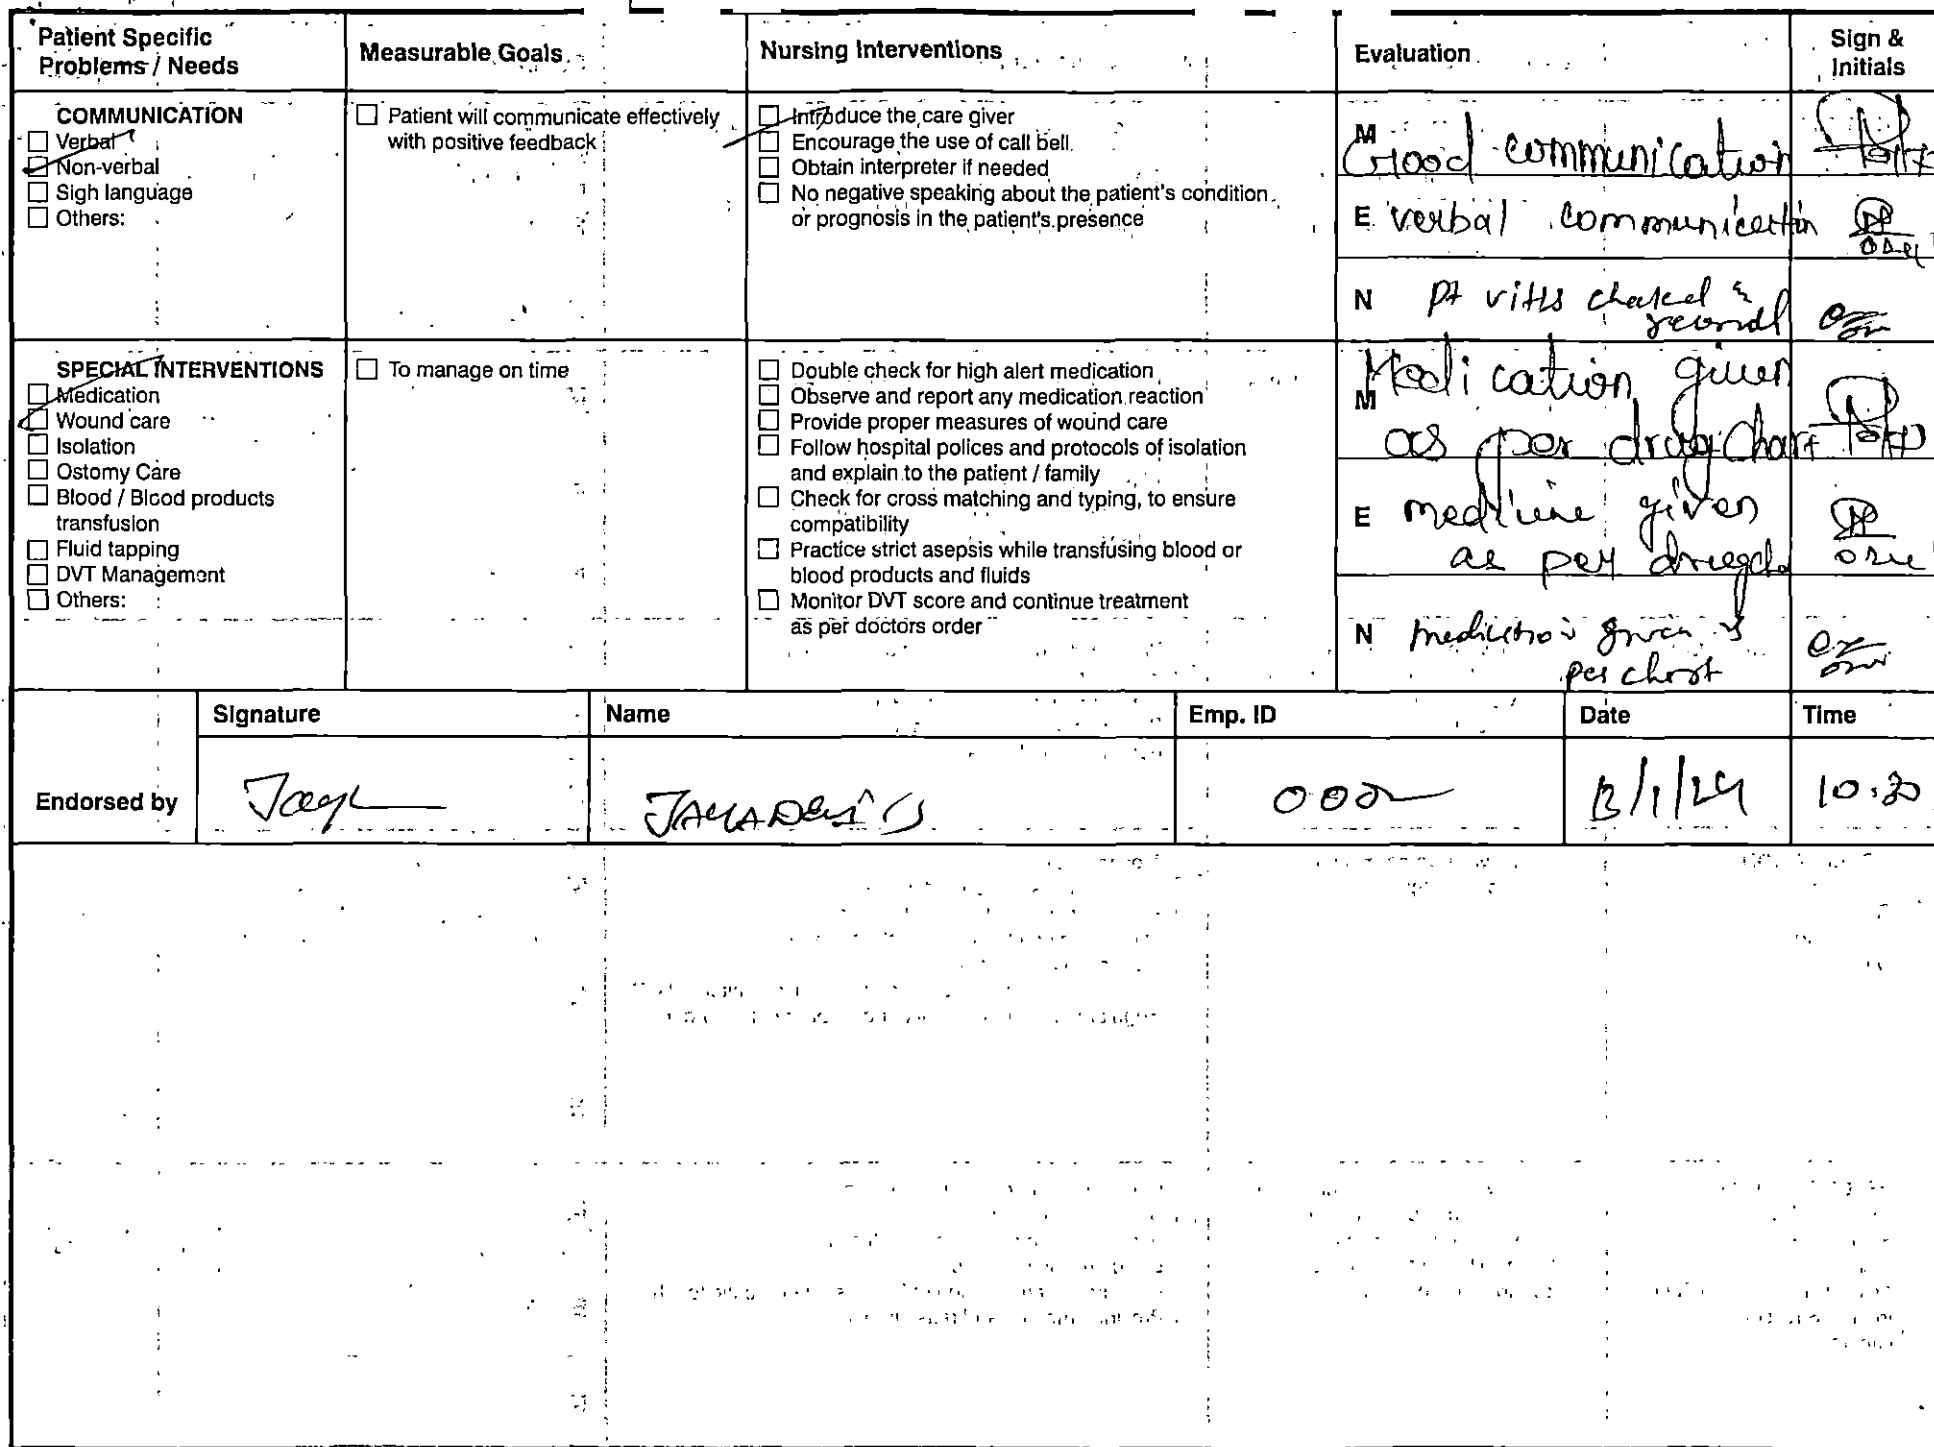 Patient Specific Problems / Needs
Measurable Goals
Nursing Interventions
Evaluation
Sign & Initials
COMMUNICATION
Verbal
Non-verbal
Sigh language
Others:
Patient will communicate effectively
with positive feedback
Introduce the care giver
Encourage the use of call bell.
Obtain interpreter if needed
No negative speaking about the patient's condition
or prognosis in the patient's presence
M Good communication
E verbal communication
N Pt
SPECIAL INTERVENTIONS
Medication
Wound care
Isolation
Ostomy Care
Blood / Blood products
transfusion
Fluid tapping
DVT Management
Others:
To manage on time
Double check for high alert medication
Observe and report any medication reaction
Provide proper measures of wound care
Follow hospital polices and protocols of isolation
and explain to the patient / family
Check for cross matching and typing, to ensure
compatibility
Practice strict asepsis while transfusing blood or
blood products and fluids
Monitor DVT score and continue treatment
as per doctors order
M Medication given
as per drug chart
E medicine given
as per
N given
per chart
Signature
Name
Emp. ID
Date
Time
Endorsed by
10.30